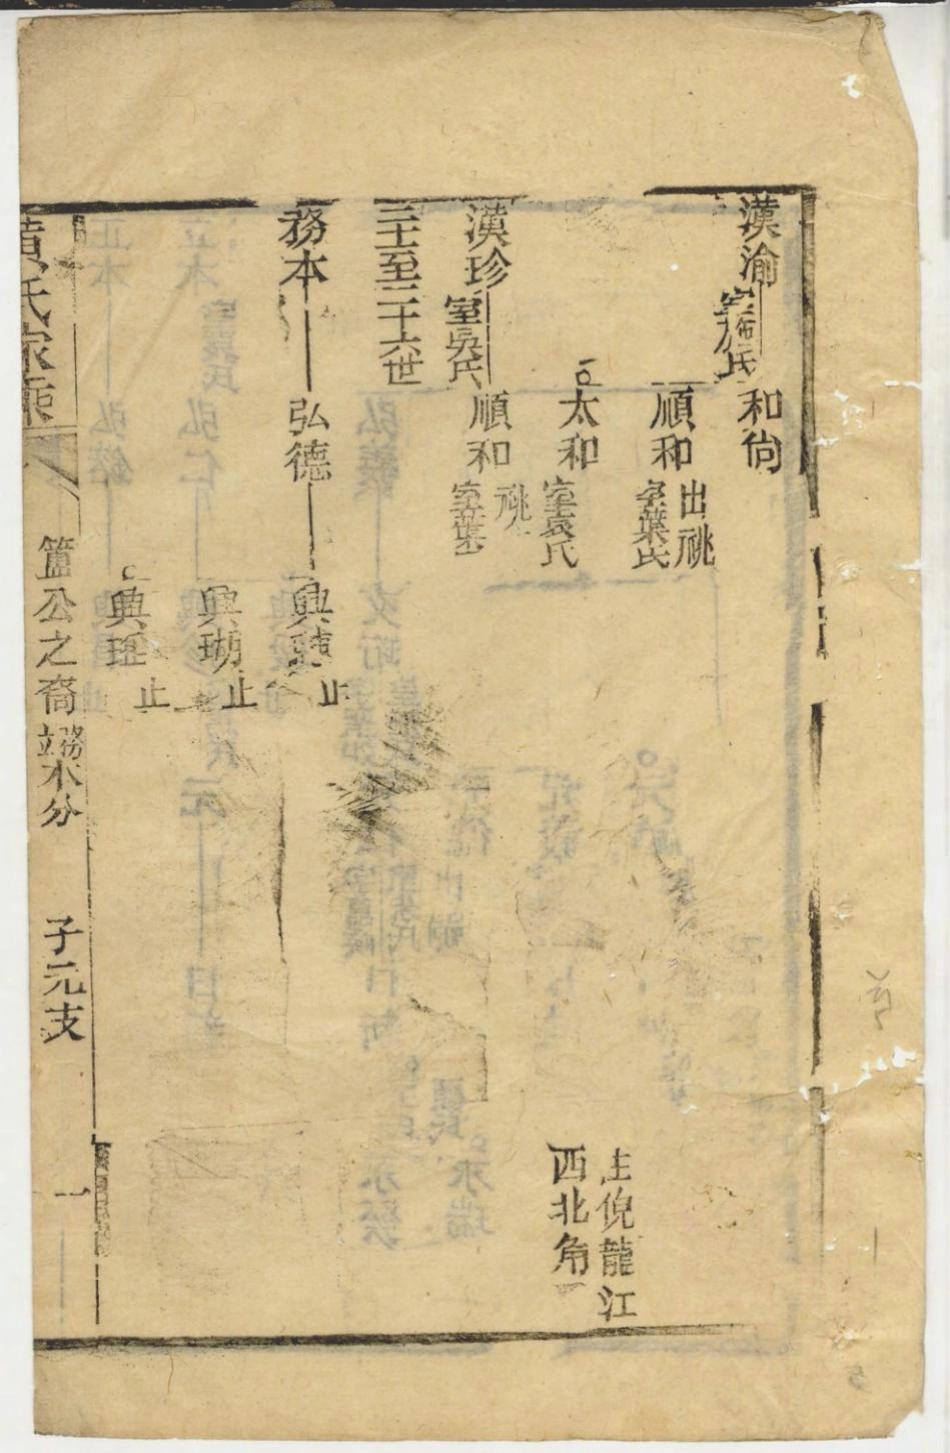 漢渝
室施氏
和尙
順和
出祧
室葉氏
太和
室袁氏
住倪龍江
西北角
漢珍
室吳氏
順和
祧
室葉
二十至二十六世
務本
弘德
典
止
典瑚
止
典
止
黃氏家乘
簠公之裔
務本分
子元支
一